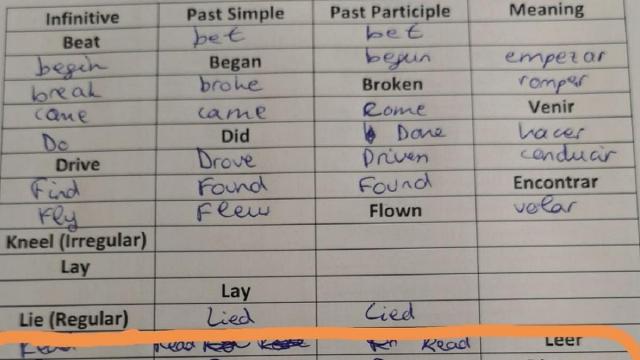 Infinitive Past Simple Past Participle Meaning
Beat bet bet
begin Began begun empezar
break broke Broken romper
came came come Venir
Do Did Done hacer
Drive Drove Driven conducir
Find Found Found Encontrar
Fly Flew Flown volar
Kneel (Irregular)
Lay
Lay
Lie (Regular) Lied Lied
Read Read Leer